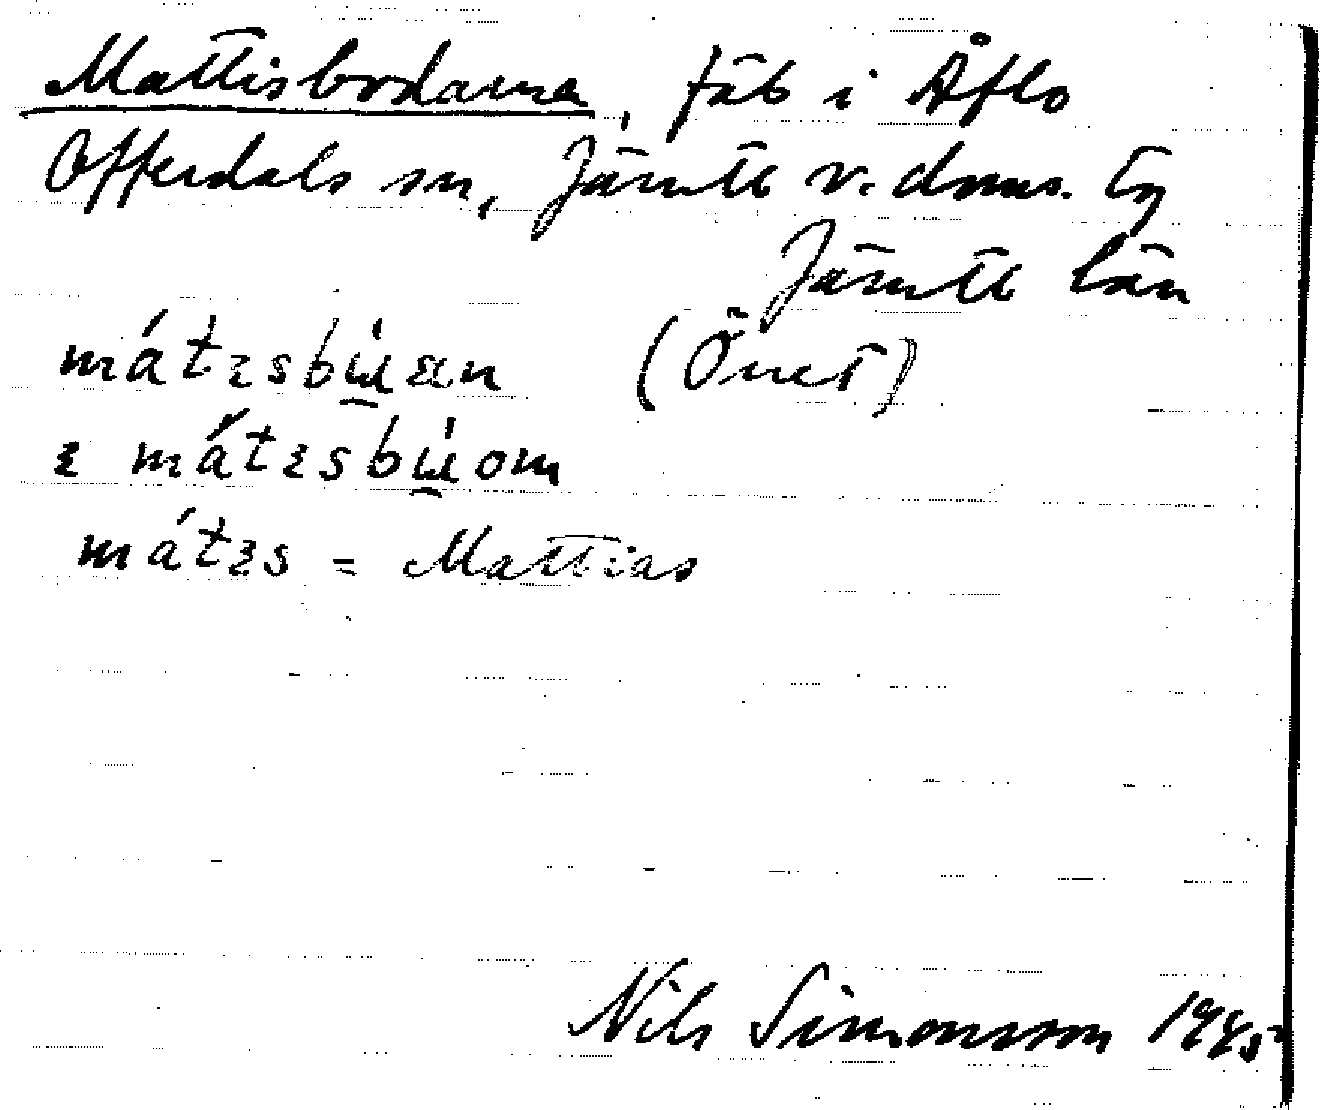 Mattisbodarna, fäb i Åflo
Offerdals sn, Jämtl v. doms. tg
Jämtl län
mátɛsbɯ̀ an
ɛ mátɛsbɯ̀om
mátɛs = Mattias
Nils Simonsson 1945